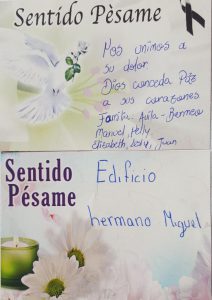 Sentido Pèsame
Nos unimos a
su dolor
Dios conceda Paz
a sus corazones
Familia: Avila - Bermeo
Manuel, Nelly,
Elizabeth, Lesly, Juan
Sentido
Pésame
Edificio
hermano Miguel